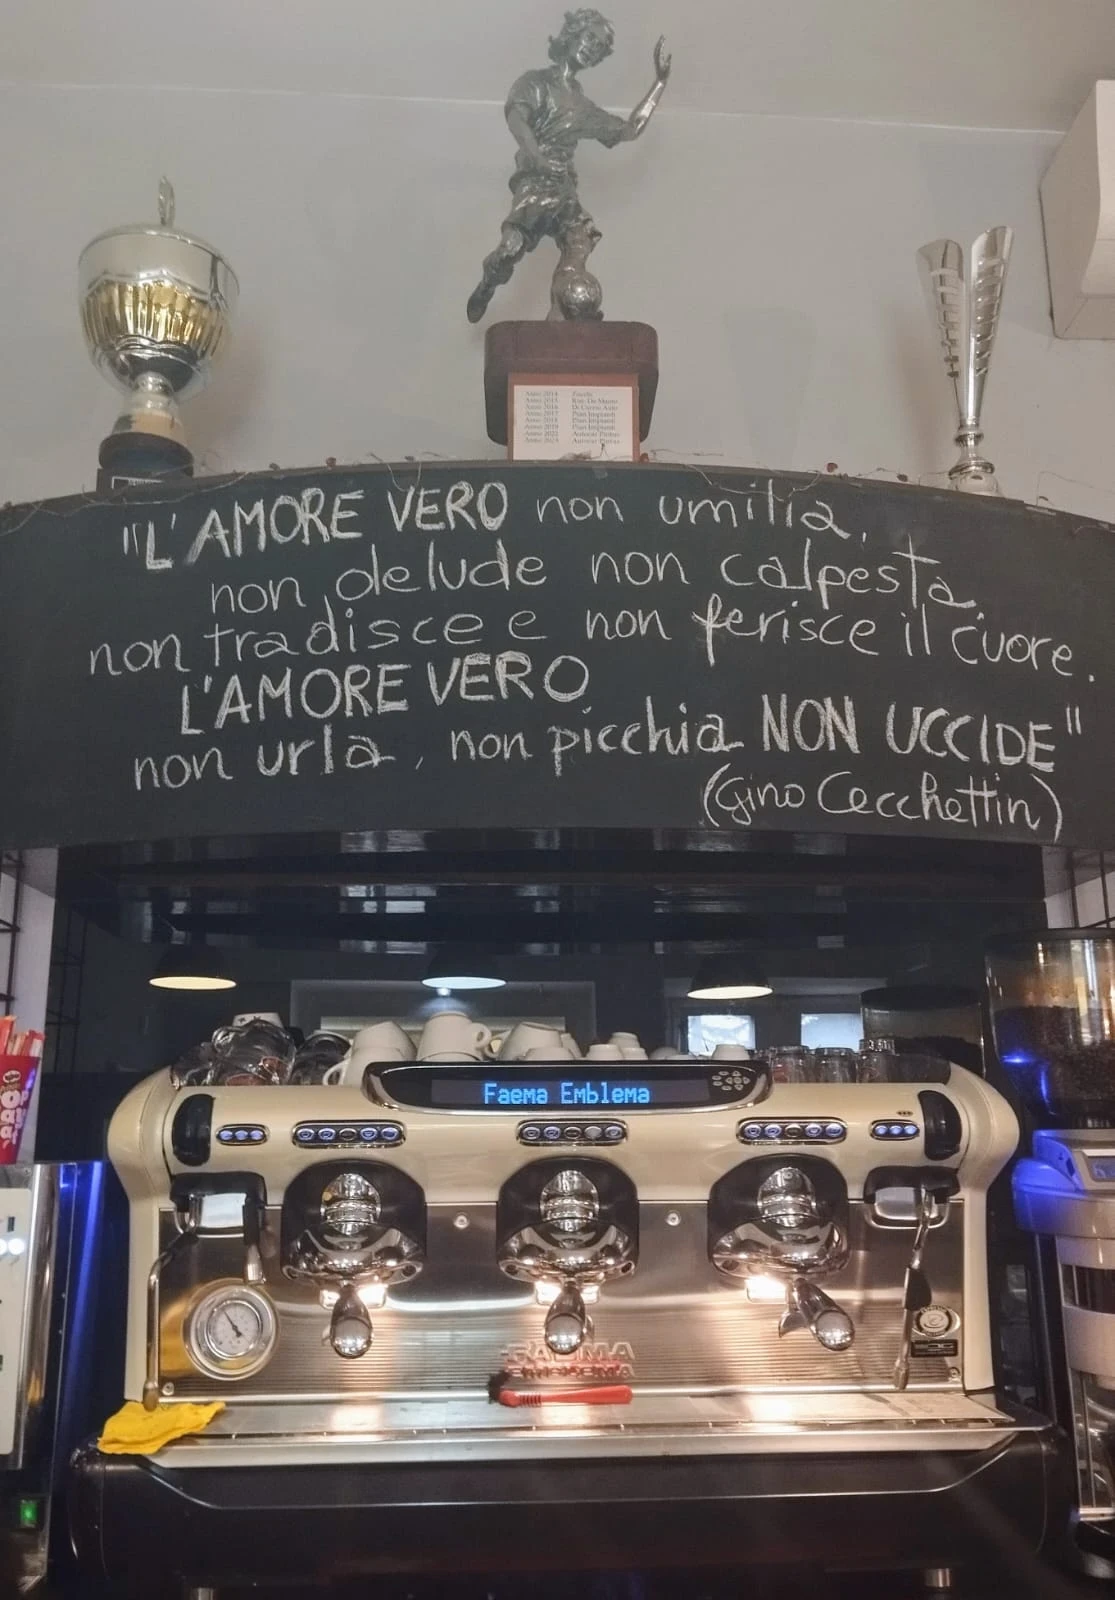 Anno 2014
Anno 2015 Rist. De Mauro
Anno 2016 Di Curzio Auto
Anno 2017 Pian Impianti
Anno 2018 Pian Impianti
Anno 2019 Pian Impianti
Anno 2022 Autocar Piritas
Anno 2023 Autocar Piritas
"L'AMORE VERO non umilia,
non delude non calpesta,
non tradisce e non ferisce il cuore.
L'AMORE VERO
non urla, non picchia NON UCCIDE"
(Gino Cecchettin)
Faema Emblema
FAEMA